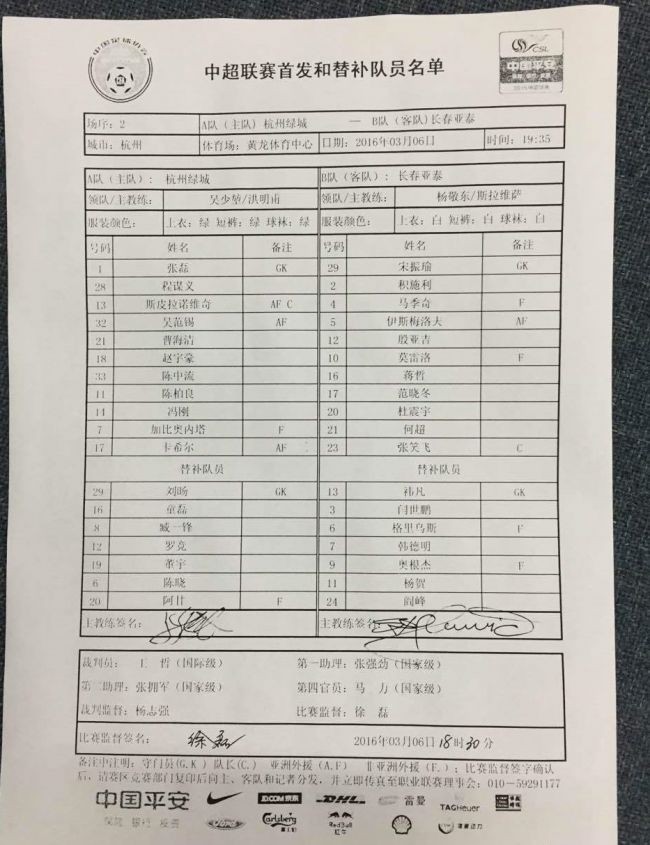 中国足球协会
CSL
中国平安
中超联赛首发和替补队员名单
场序：2 A队（主队）杭州绿城 — B队（客队）长春亚泰
城市：杭州 体育场：黄龙体育中心 日期：2016年03月06日 时间：19:35
A队（主队）： 杭州绿城 B队（客队）： 长春亚泰
领队/主教练： 吴少堃/洪明甫 领队/主教练： 杨敬东/斯拉维萨
服装颜色： 上衣：绿 短裤：绿 球袜：绿 服装颜色： 上衣：白 短裤：白 球袜：白
号码 姓名 备注 号码 姓名 备注
1 张磊 GK 29 宋振瑜 GK
28 程谋义 2 积施利
13 斯皮拉诺维奇 AF C 4 马季奇 F
32 吴范锡 AF 5 伊斯梅洛夫 AF
21 曹海清 12 殷亚吉
18 赵宇豪 10 莫雷洛 F
33 陈中流 16 蒋哲
11 陈柏良 17 范晓冬
14 冯刚 20 杜震宇
7 加比奥内塔 F 21 何超
17 卡希尔 AF 23 张笑飞 C
替补队员 替补队员
29 刘旸 GK 13 祎凡 GK
16 童磊 3 闫世鹏
8 臧一锋 6 格里乌斯 F
12 罗竞 7 韩德明
19 董宇 9 奥根杰 F
6 陈晓 11 杨贺
20 阿甘 F 24 阎峰
主教练签名： 主教练签名：
裁判员： 王 哲（国际级） 第一助理：张强劲（国家级）
第二助理：张拥军（国家级） 第四官员：马 力（国家级）
裁判监督：杨志强 比赛监督：徐 磊
比赛监督签名： 徐磊 2016年03月06日 18时30分
备注中注明：守门员(G.K ) 队长(C.) 亚洲外援（A.F） 非亚洲外援（F.）；比赛监督签字确认
后，请赛区竞赛部门复印后向主、客队和记者分发，并立即传真至职业联赛理事会：010-59291177
中国平安 JD.COM 京东 DHL 雷曼 TAGHeuer
保险·银行·投资 Ford Carlsberg 嘉士伯 Red Bull 红牛